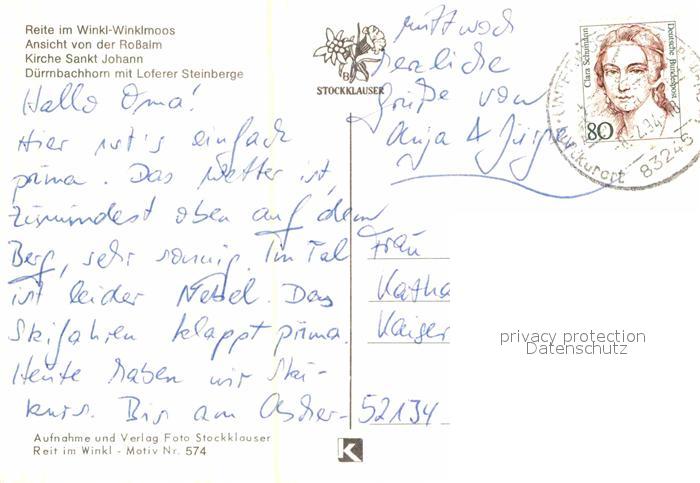 Reite im Winkl-Winklmoos
Ansicht von der Roßalm
Kirche Sankt Johann
Dürrnbachhorn mit Loferer Steinberge
STOCKKLAUSER
Hallo Oma!
Hier ist's einfach
prima. Das Wetter ist,
zumindest oben auf dem
Berg, sehr sonnig. Im Tal
ist leider Nebel. Das
Skifahren klappt prima.
Heute haben wir Ski-
kurs. Bis am Ascher-
mittwoch
herzliche
Grüße von
Anja & Jürgen
Frau
Katha
Kaiser
52134
Clara Schumann
Deutsche Bundespost
80
83246
Luftkurort
privacy protection
Datenschutz
Aufnahme und Verlag Foto Stockklauser
Reit im Winkl - Motiv Nr. 574
K